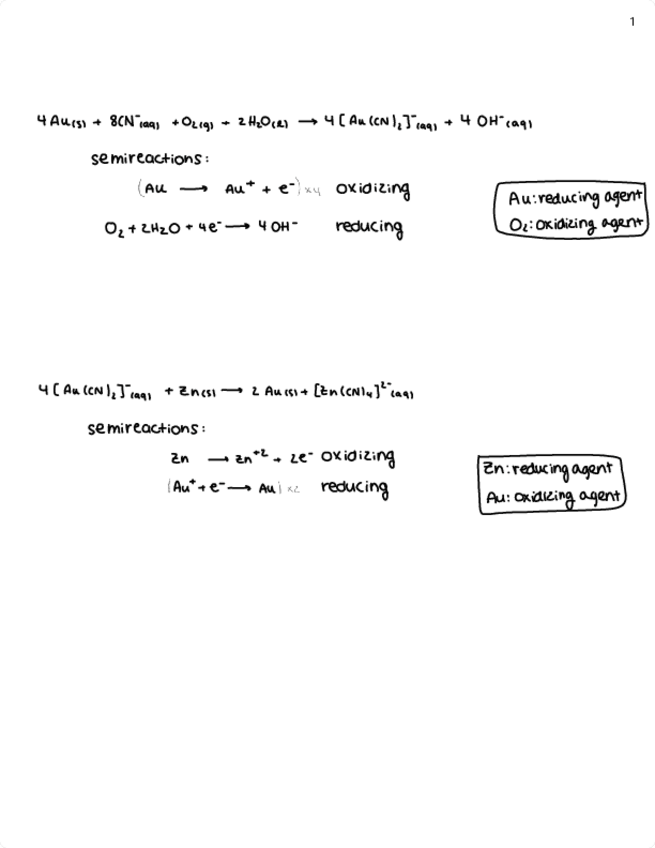 1
4 Au(s) + 8CN⁻(aq) + O₂(g) + 2H₂O(l) → 4[Au(CN)₂]⁻(aq) + 4 OH⁻(aq)
semireactions:
(Au → Au⁺ + e⁻)x4 oxidizing
O₂ + 2H₂O + 4e⁻ → 4 OH⁻ reducing
Au: reducing agent
O₂: oxidizing agent
4[Au(CN)₂]⁻(aq) + Zn(s) → 2 Au(s) + [Zn(CN)₄]²⁻(aq)
semireactions:
Zn → Zn⁺² + 2e⁻ oxidizing
(Au⁺ + e⁻ → Au) x2 reducing
Zn: reducing agent
Au: oxidizing agent